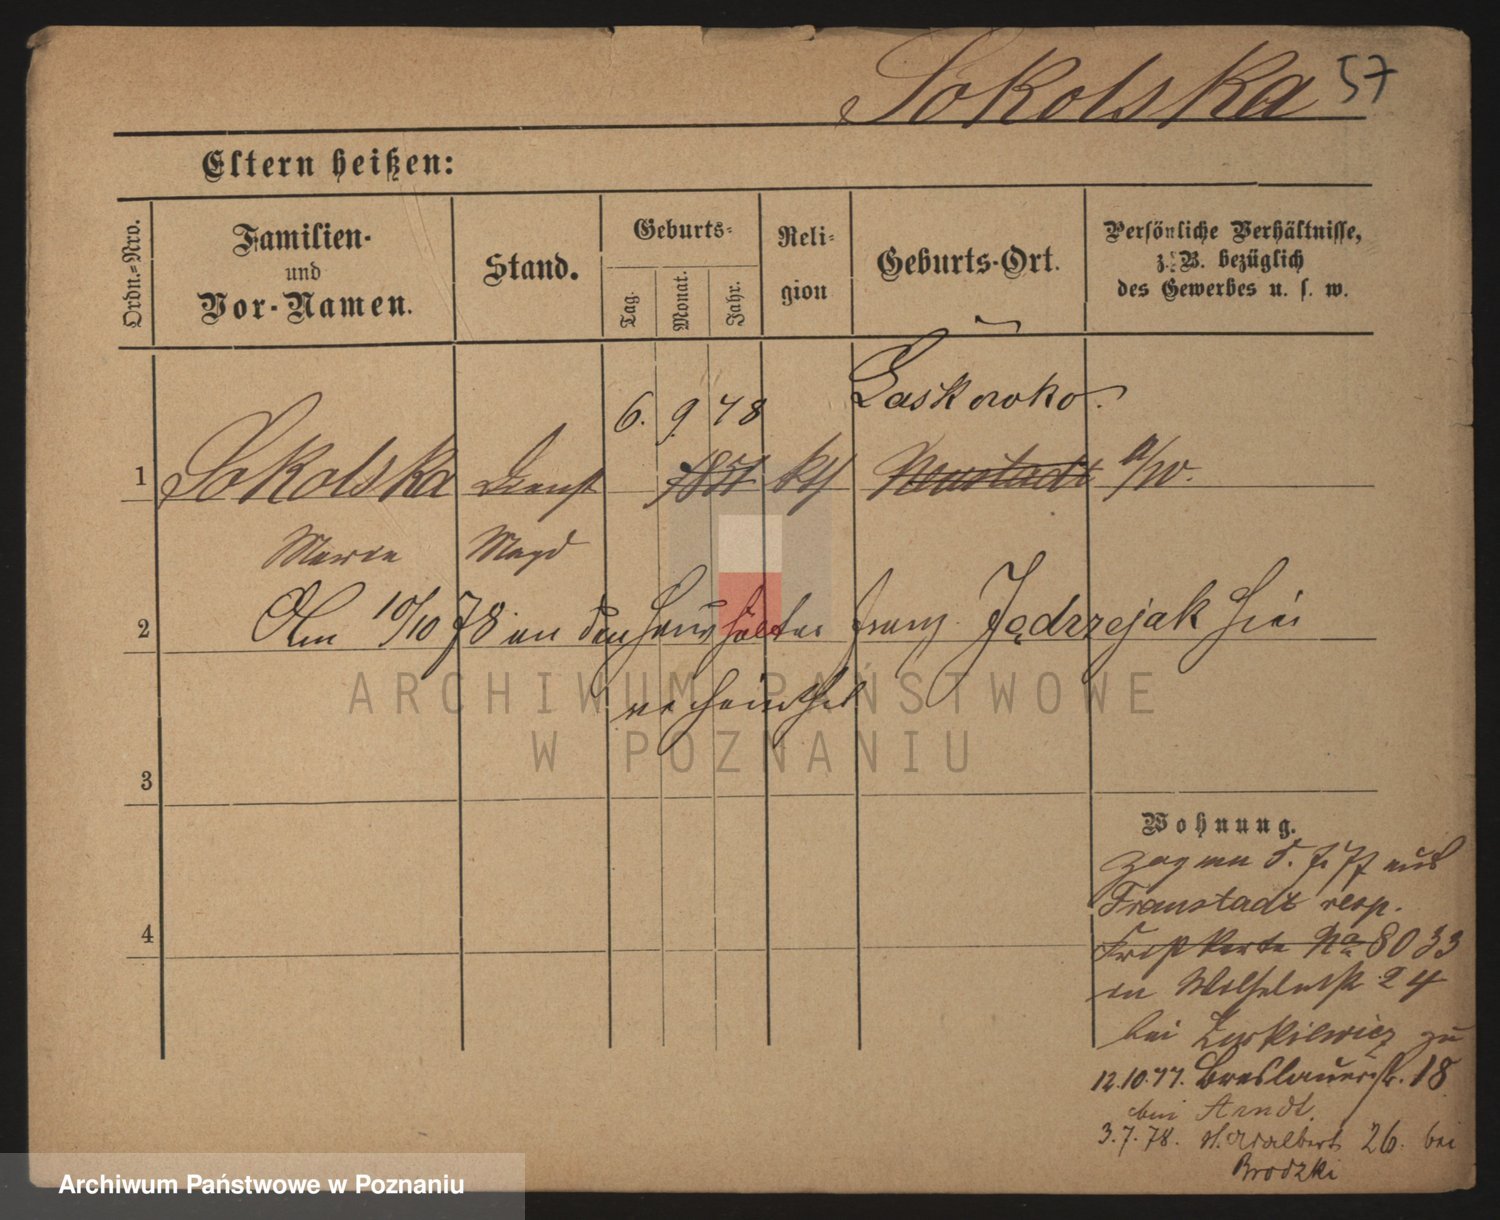 Sokolska 57
Eltern heißen:
Ordn.-Nro.
Familien-
und
Vor-Namen.
Stand.
Geburts-
Tag.
Monat.
Jahr.
Reli-
gion
Geburts-Ort.
Persönliche Verhältnisse,
z. B. bezüglich
des Gewerbes u. s. w.
6. 9. 48 Laskowko.
1 Sokolska Dienst 1851 kth Neustadt a/W.
Maria Magd
2 Am 10/10 78 an den Haushälter Franz Jędrzejak hier
verheirathet
3
Wohnung.
zog am 5. 7. 77 aus
Fraustadt resp.
Fristkarte No 8033
in Wilhelmstr 24
bei zu
4
12.10.77. Breslauerstr. 18
bei Arndt.
3.7.78. St. Adalbert 26. bei
Brodzki
ARCHIWUM PAŃSTWOWE
W POZNANIU
Archiwum Państwowe w Poznaniu